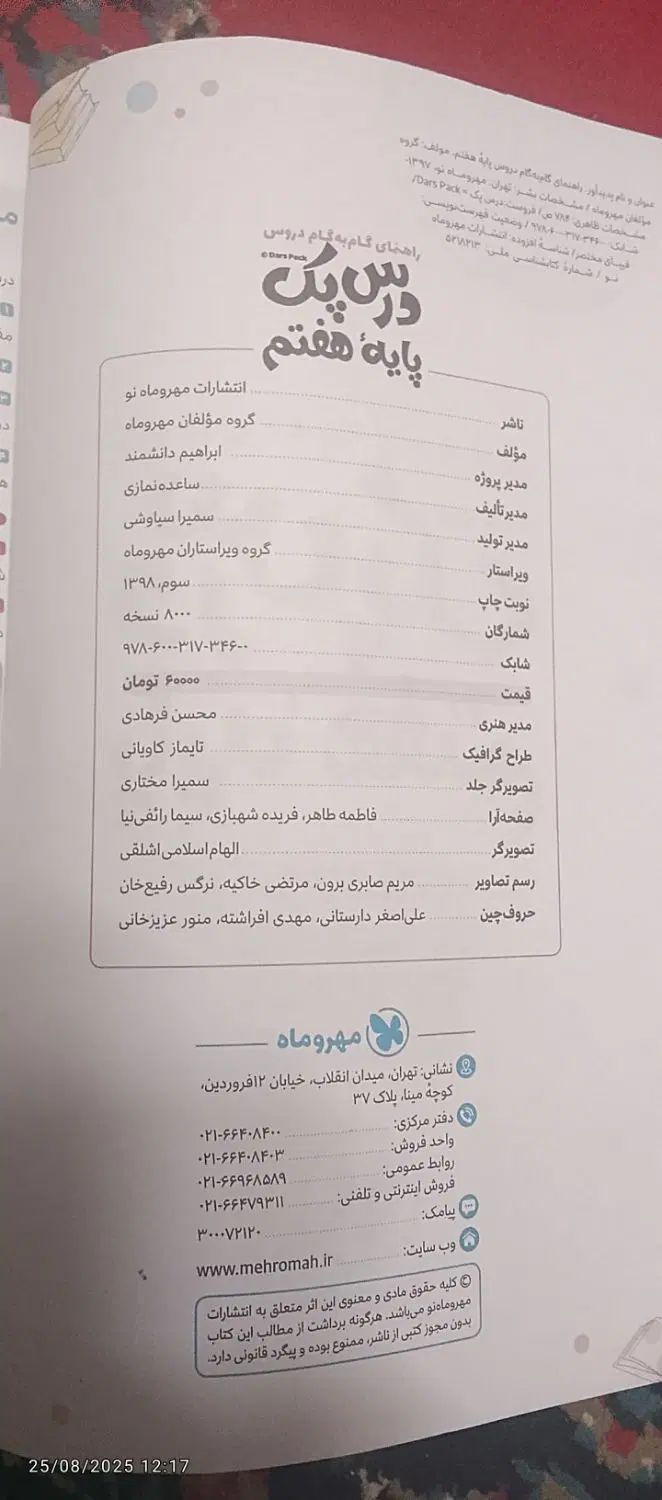 عنوان و نام پدیدآور: راهنمای گام‌به‌گام دروس پایهٔ هفتم، مولف: گروه
مؤلفان مهروماه / مشخصات نشر: تهران: مهروماه نو، ۱۳۹۷-
مشخصات ظاهری: ۷۸۴ ص / فروست: درس پک = Dars Pack/
شابک: ۰-۳۴۶-۳۱۷-۶۰۰-۹۷۸ / وضعیت فهرست‌نویسی:
فیپای مختصر / شناسهٔ افزوده: انتشارات مهروماه
نو / شمارهٔ کتابشناسی ملی: ۵۲۱۸۲۱۳
راهنمای گام‌به‌گام دروس
© Dars Pack
درس پک
پایهٔ هفتم
ناشر انتشارات مهروماه نو
مؤلف گروه مؤلفان مهروماه
مدیر پروژه ابراهیم دانشمند
مدیر تألیف ساعده نمازی
مدیر تولید سمیرا سیاوشی
ویراستار گروه ویراستاران مهروماه
نوبت چاپ سوم، ۱۳۹۸
شمارگان ۸۰۰۰ نسخه
شابک ۹۷۸-۶۰۰-۳۱۷-۳۴۶-۰
قیمت ۶۰۰۰۰ تومان
مدیر هنری محسن فرهادی
طراح گرافیک تایماز کاویانی
تصویرگر جلد سمیرا مختاری
صفحه‌آرا فاطمه طاهر، فریده شهبازی، سیما رائفی‌نیا
تصویرگر الهام اسلامی اشلقی
رسم تصاویر مریم صابری برون، مرتضی خاکیه، نرگس رفیع‌خان
حروف‌چین علی‌اصغر دارستانی، مهدی افراشته، منور عزیزخانی
مهروماه
نشانی: تهران، میدان انقلاب، خیابان ۱۲فروردین،
کوچهٔ مینا، پلاک ۳۷
دفتر مرکزی: ۰۲۱-۶۶۴۰۸۴۰۰
واحد فروش: ۰۲۱-۶۶۴۰۸۴۰۳
روابط عمومی: ۰۲۱-۶۶۹۶۸۵۸۹
فروش اینترنتی و تلفنی: ۰۲۱-۶۶۴۷۹۳۱۱
پیامک: ۳۰۰۰۷۲۱۲۰
وب سایت: www.mehromah.ir
© کلیه حقوق مادی و معنوی این اثر متعلق به انتشارات
مهروماه‌نو می‌باشد. هرگونه برداشت از مطالب این کتاب
بدون مجوز کتبی از ناشر، ممنوع بوده و پیگرد قانونی دارد.
25/08/2025 12:17